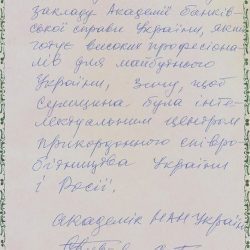 закладу Академії банків-
ської справи України, який
готує високих професіона-
лів для майбутнього
України, Зичу, щоб
Сумщина була інте-
лектуальним центром
прикордонного співро-
бітництва України
і Росії.
Академік НАН України